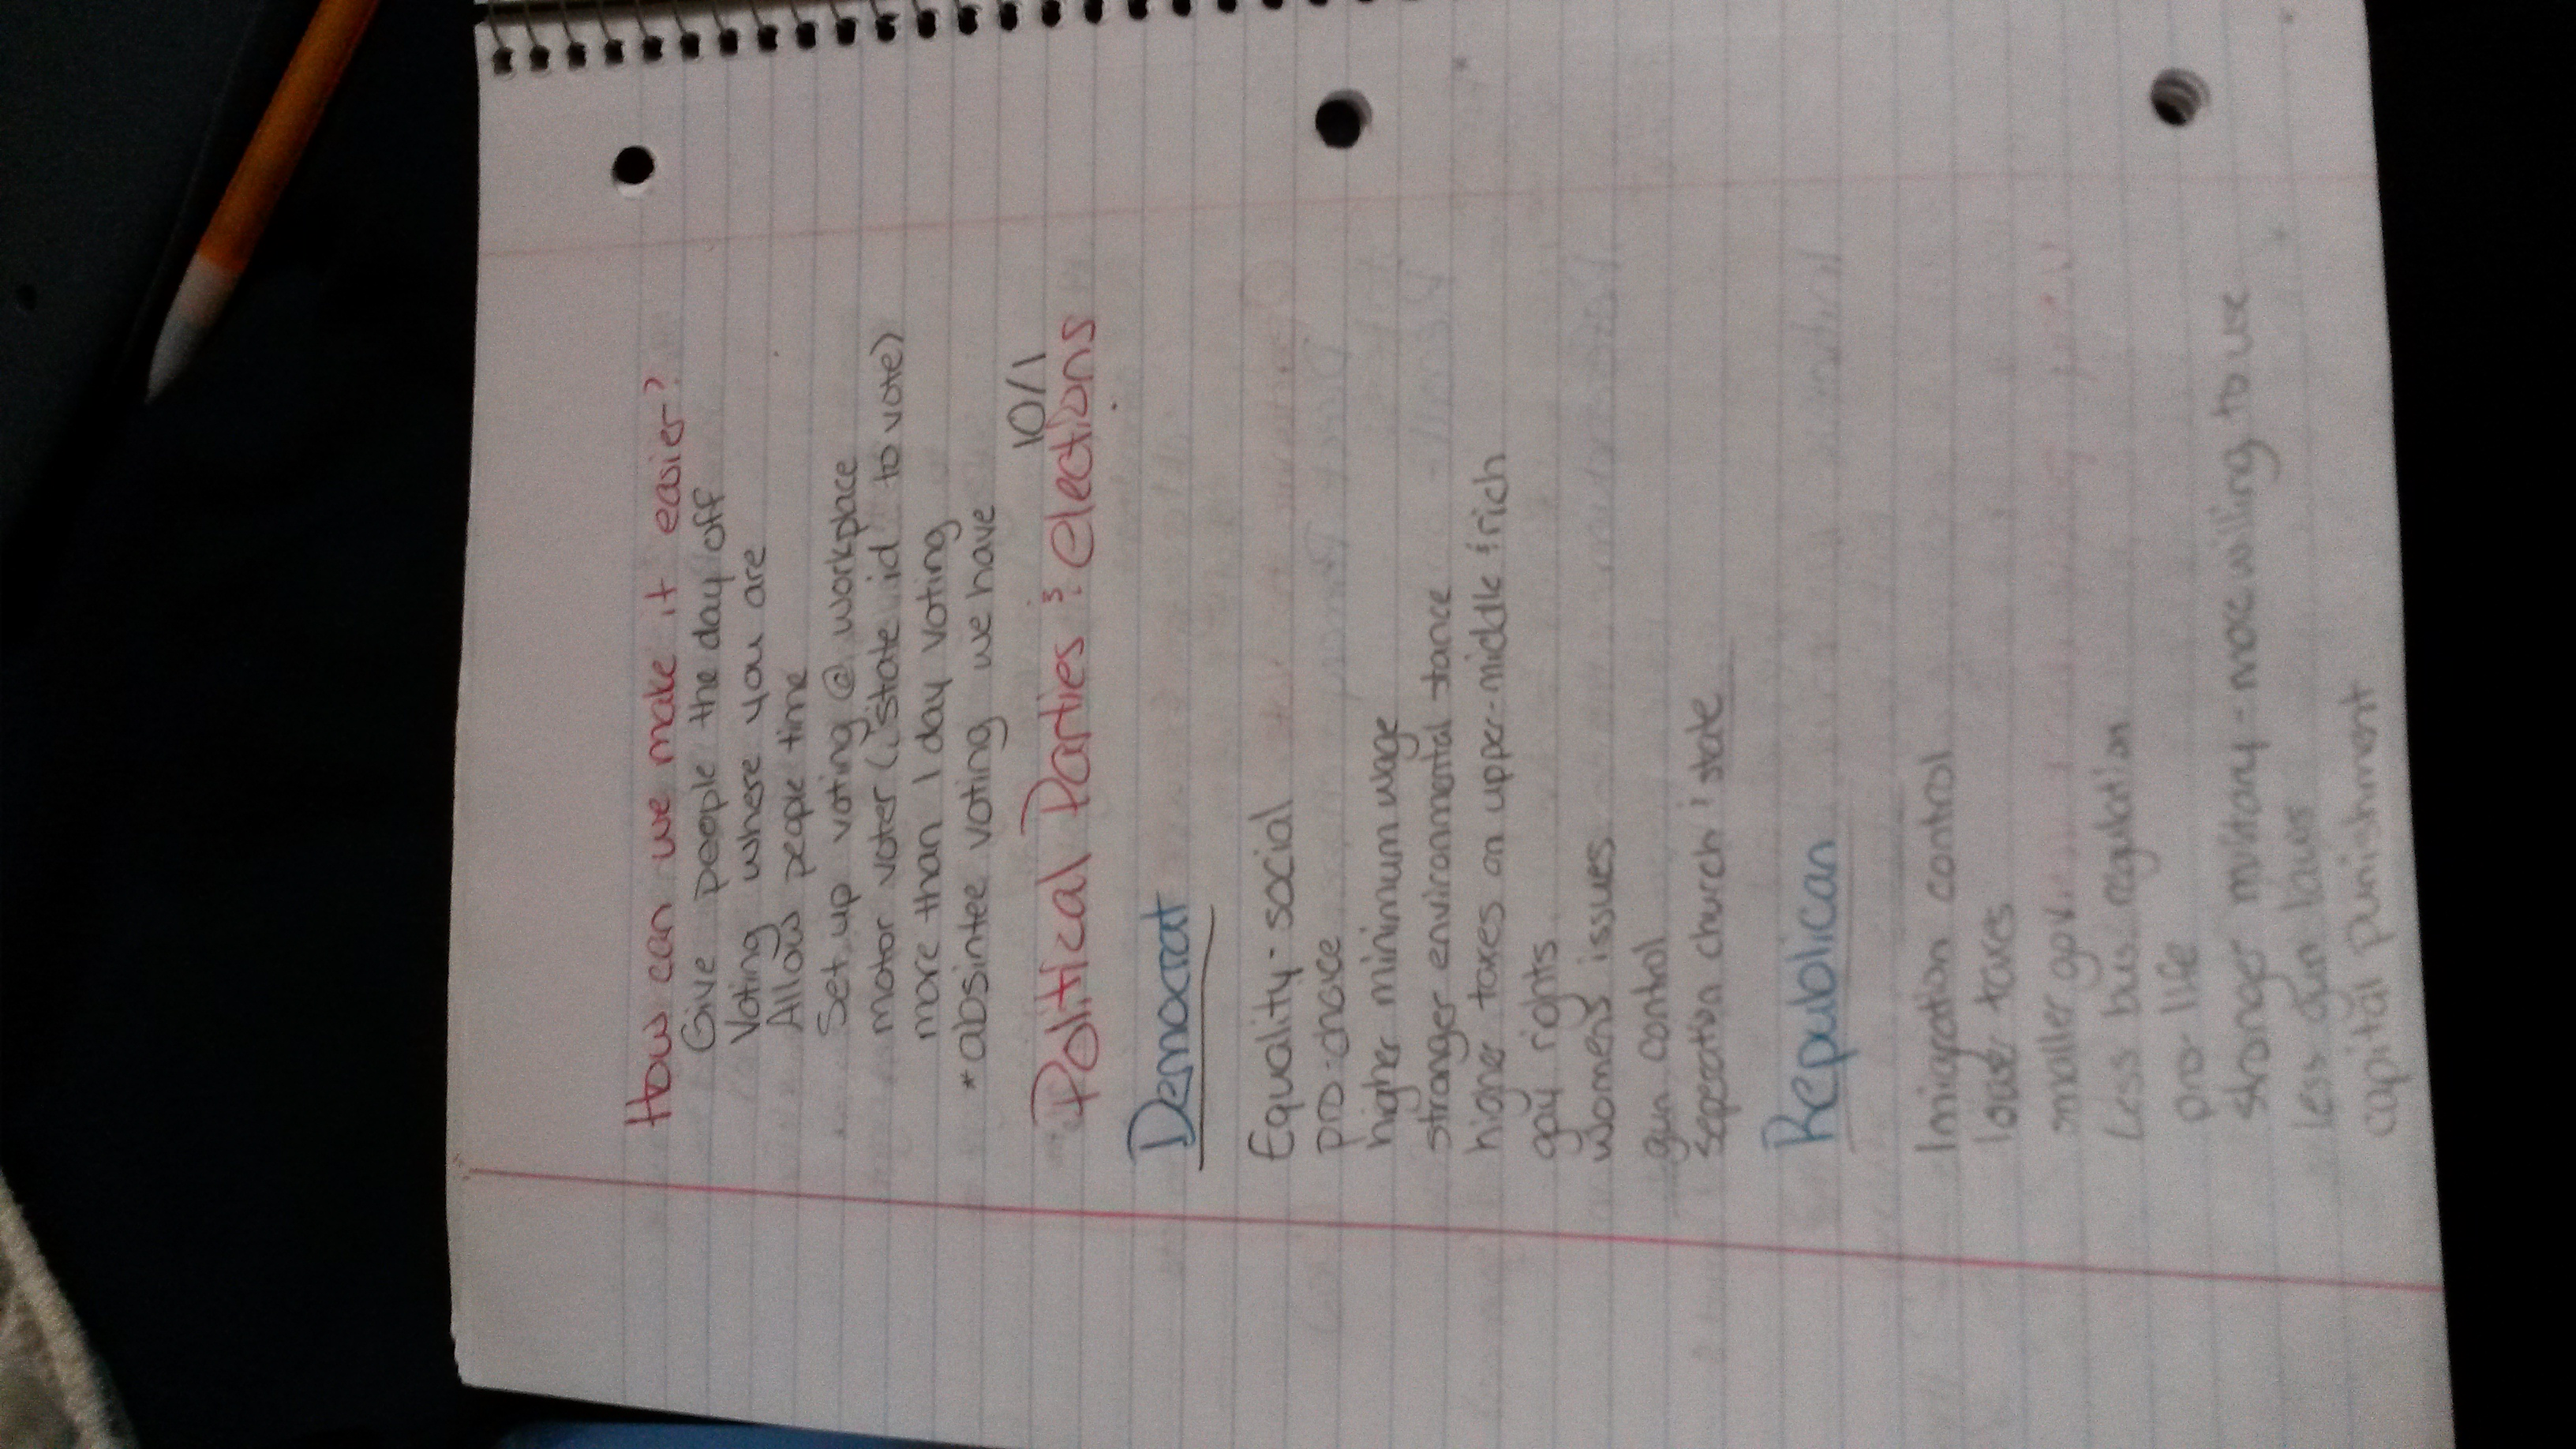 How can we make it easier?
Give people the day off
Voting where you are
Allow people time
Set up voting @ workplace
motor voter (state id to vote)
more than 1 day voting
*absintee voting we have
10/1
Political Parties & elections
Democrat
Equality - social
pro-choice
higher minimum wage
stronger environmental stance
higher taxes on upper-middle & rich
gay rights
womens issues
gun control
seperation church & state
Republican
Imigration control
lower taxes
smaller gov.
Less bus. regulation
pro-life
stronger military - more willing to use
less gun laws
capital punishment